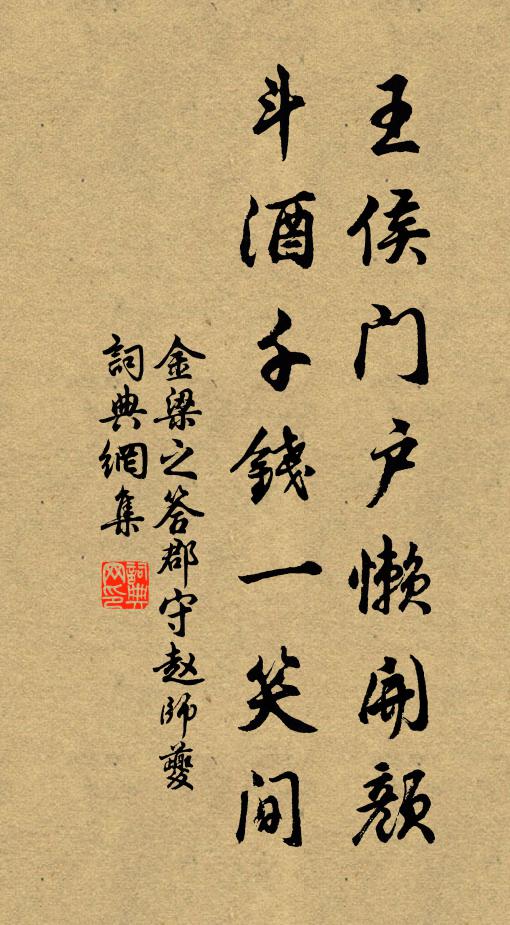 王侯门户懒开颜
斗酒千钱一笑间
金梁之答郡守赵师䕫
詞典網集
詞典网印